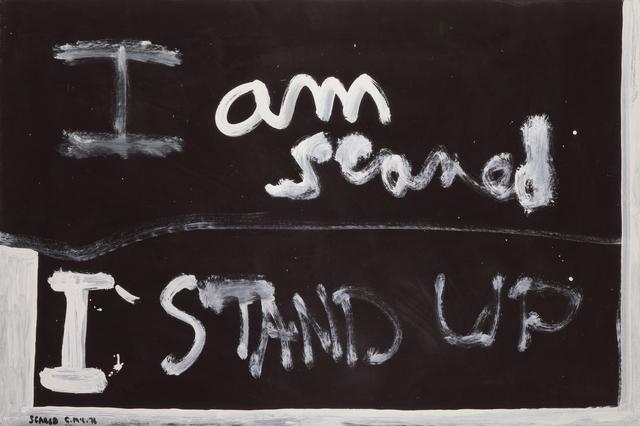 I am
scared
I STAND UP
SCARED C.McC. 76